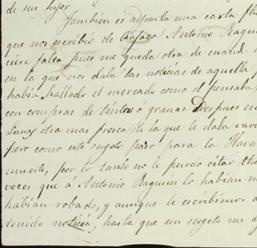 de su Lugar
Tambien es adjunta una carta
que nos escribio de Antonio Baqu
falta pues me queda otra de
en la que nos daba las noticias de aquella
habia hallado el mercado como el pensaba
con compras de tintes ó granas Despues
otra mas fresca en la que le daba
pero como este sugeto pasó para la Hava
muerto, por lo tanto no le puedo citar
veces que á Antonio Baquien lo habian
habian robado, y aunque le escribimos
tenido noticia, hasta que un sugeto me